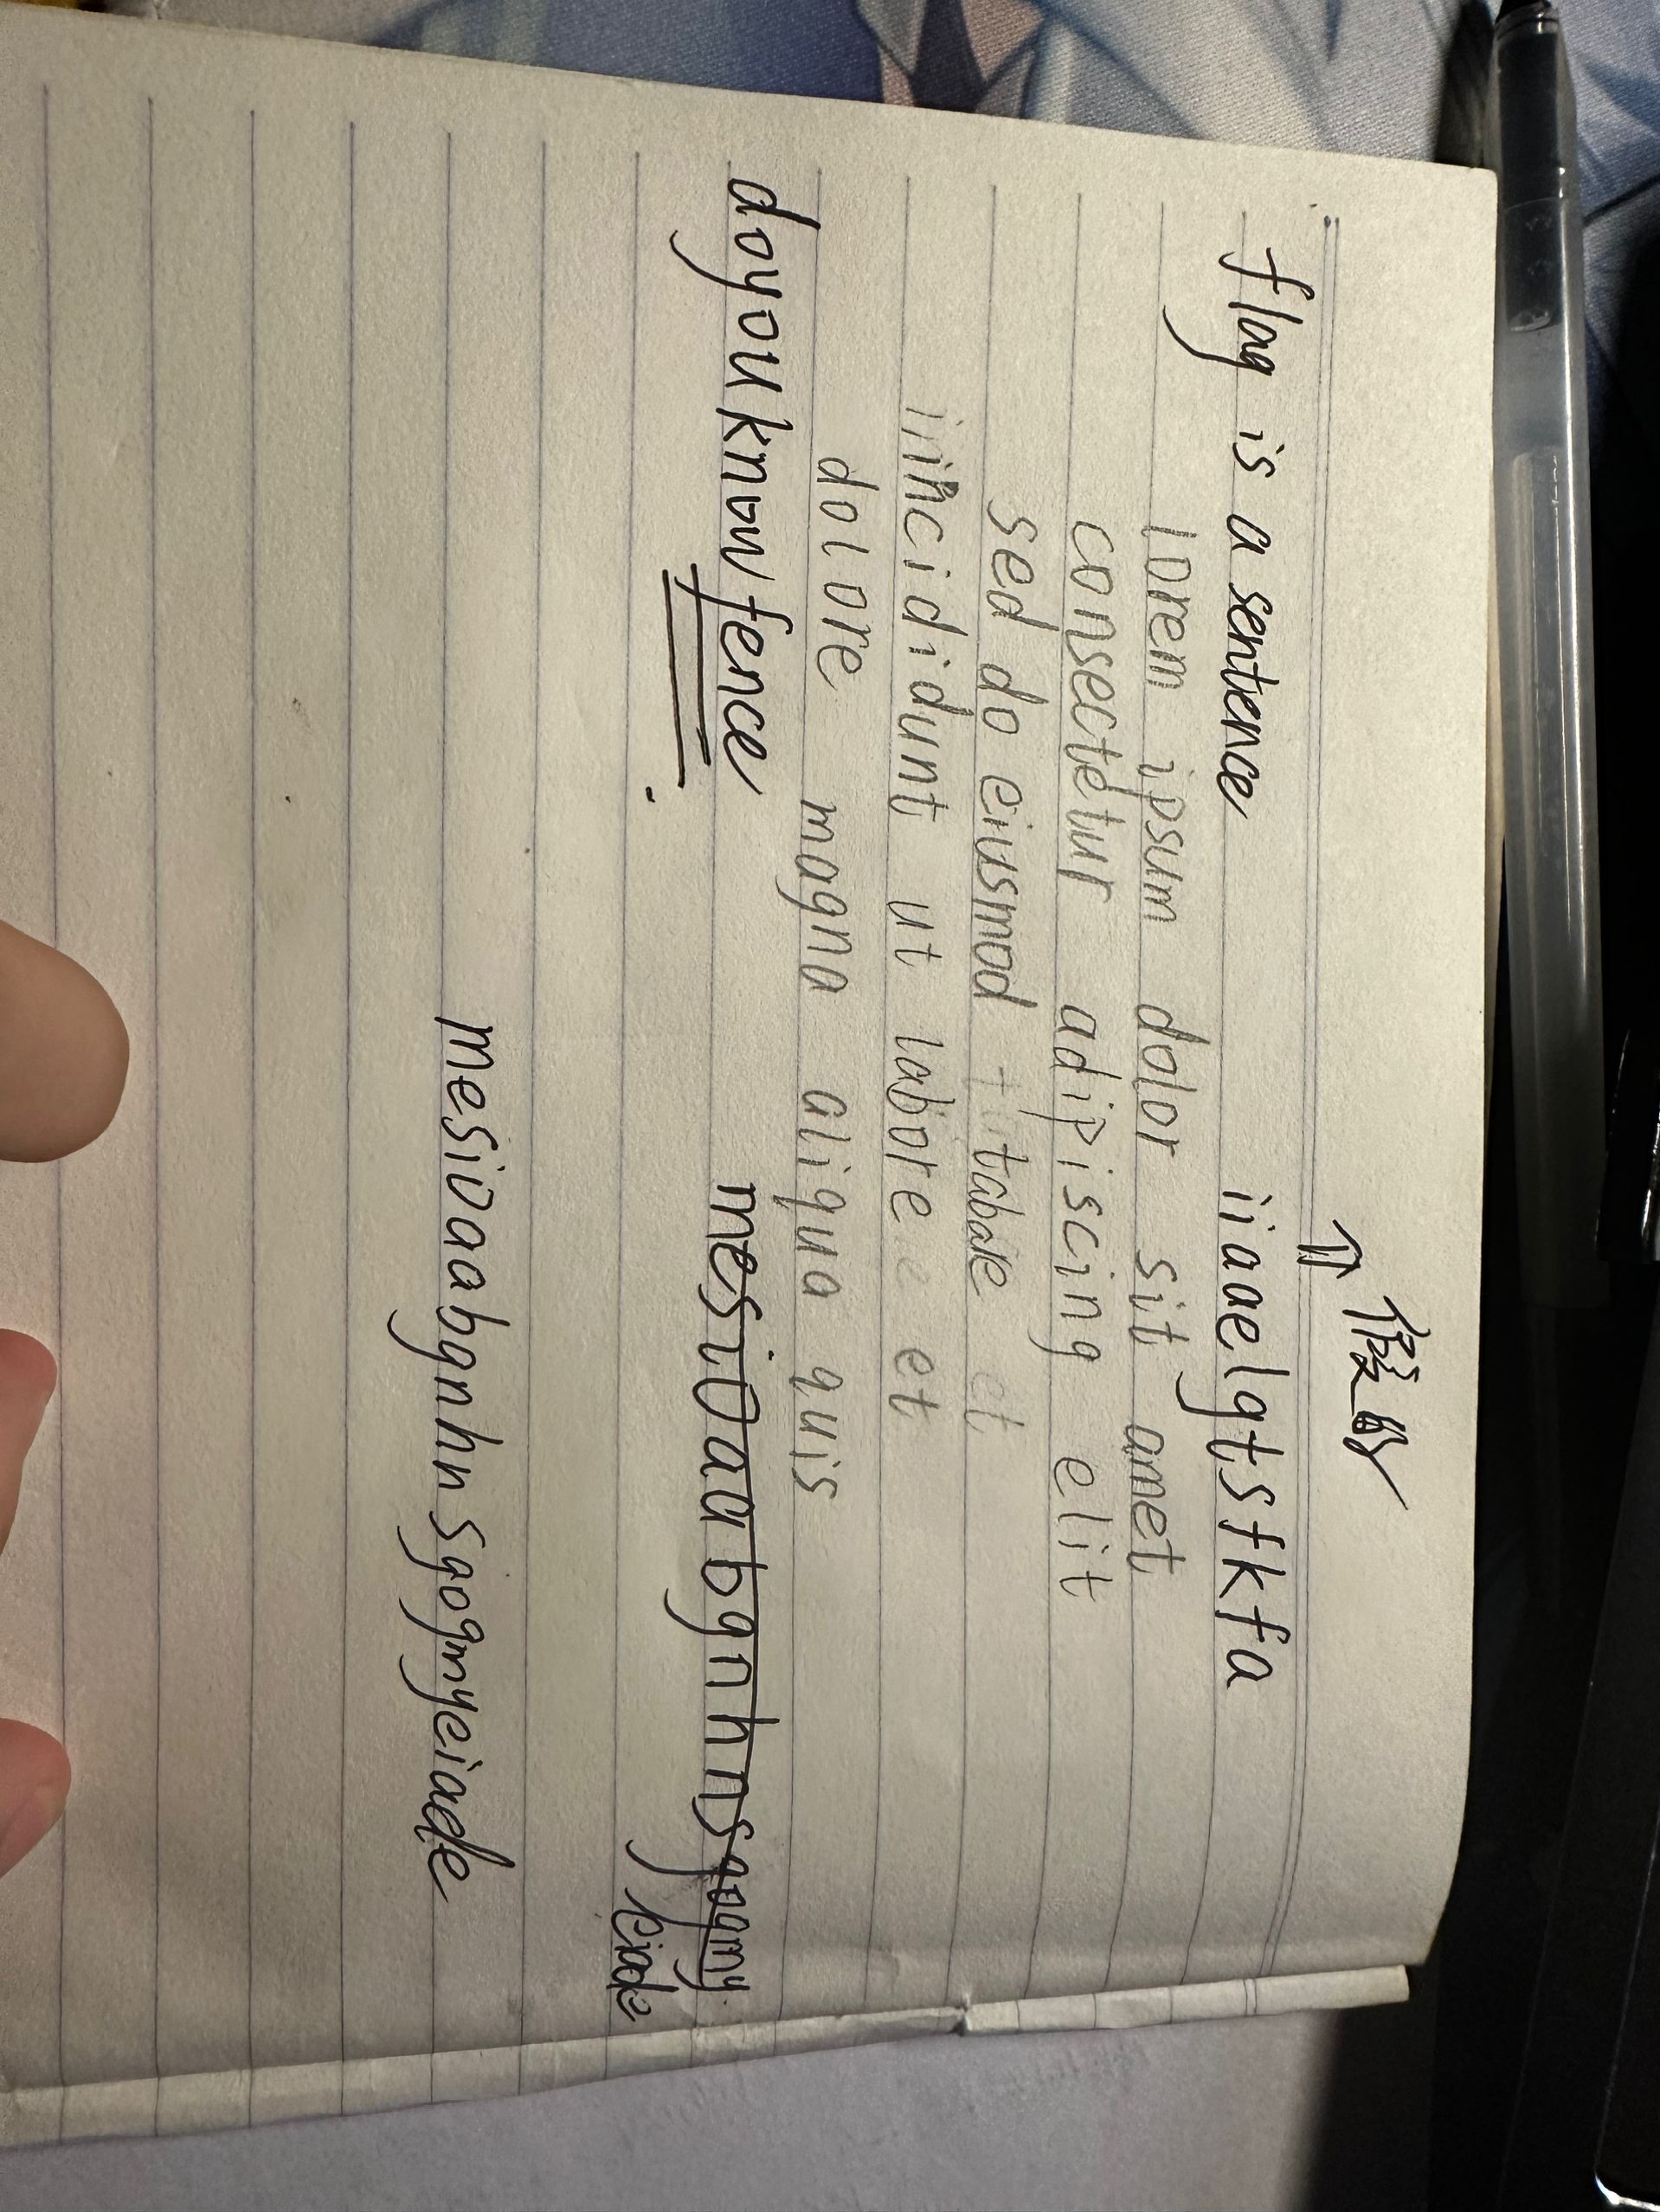 假的
⇐
flag is a sentence iiaaelgtstkfa
lorem ipsum dolor sit amet
consectetur adipiscing elit
sed do eiusmod tabore et
incididunt ut labore et
dolore magna aliqua quis
doyouknowfence mesioaabgnhnsgogmyeiade
mesioaabgnhnsgogmyeiade